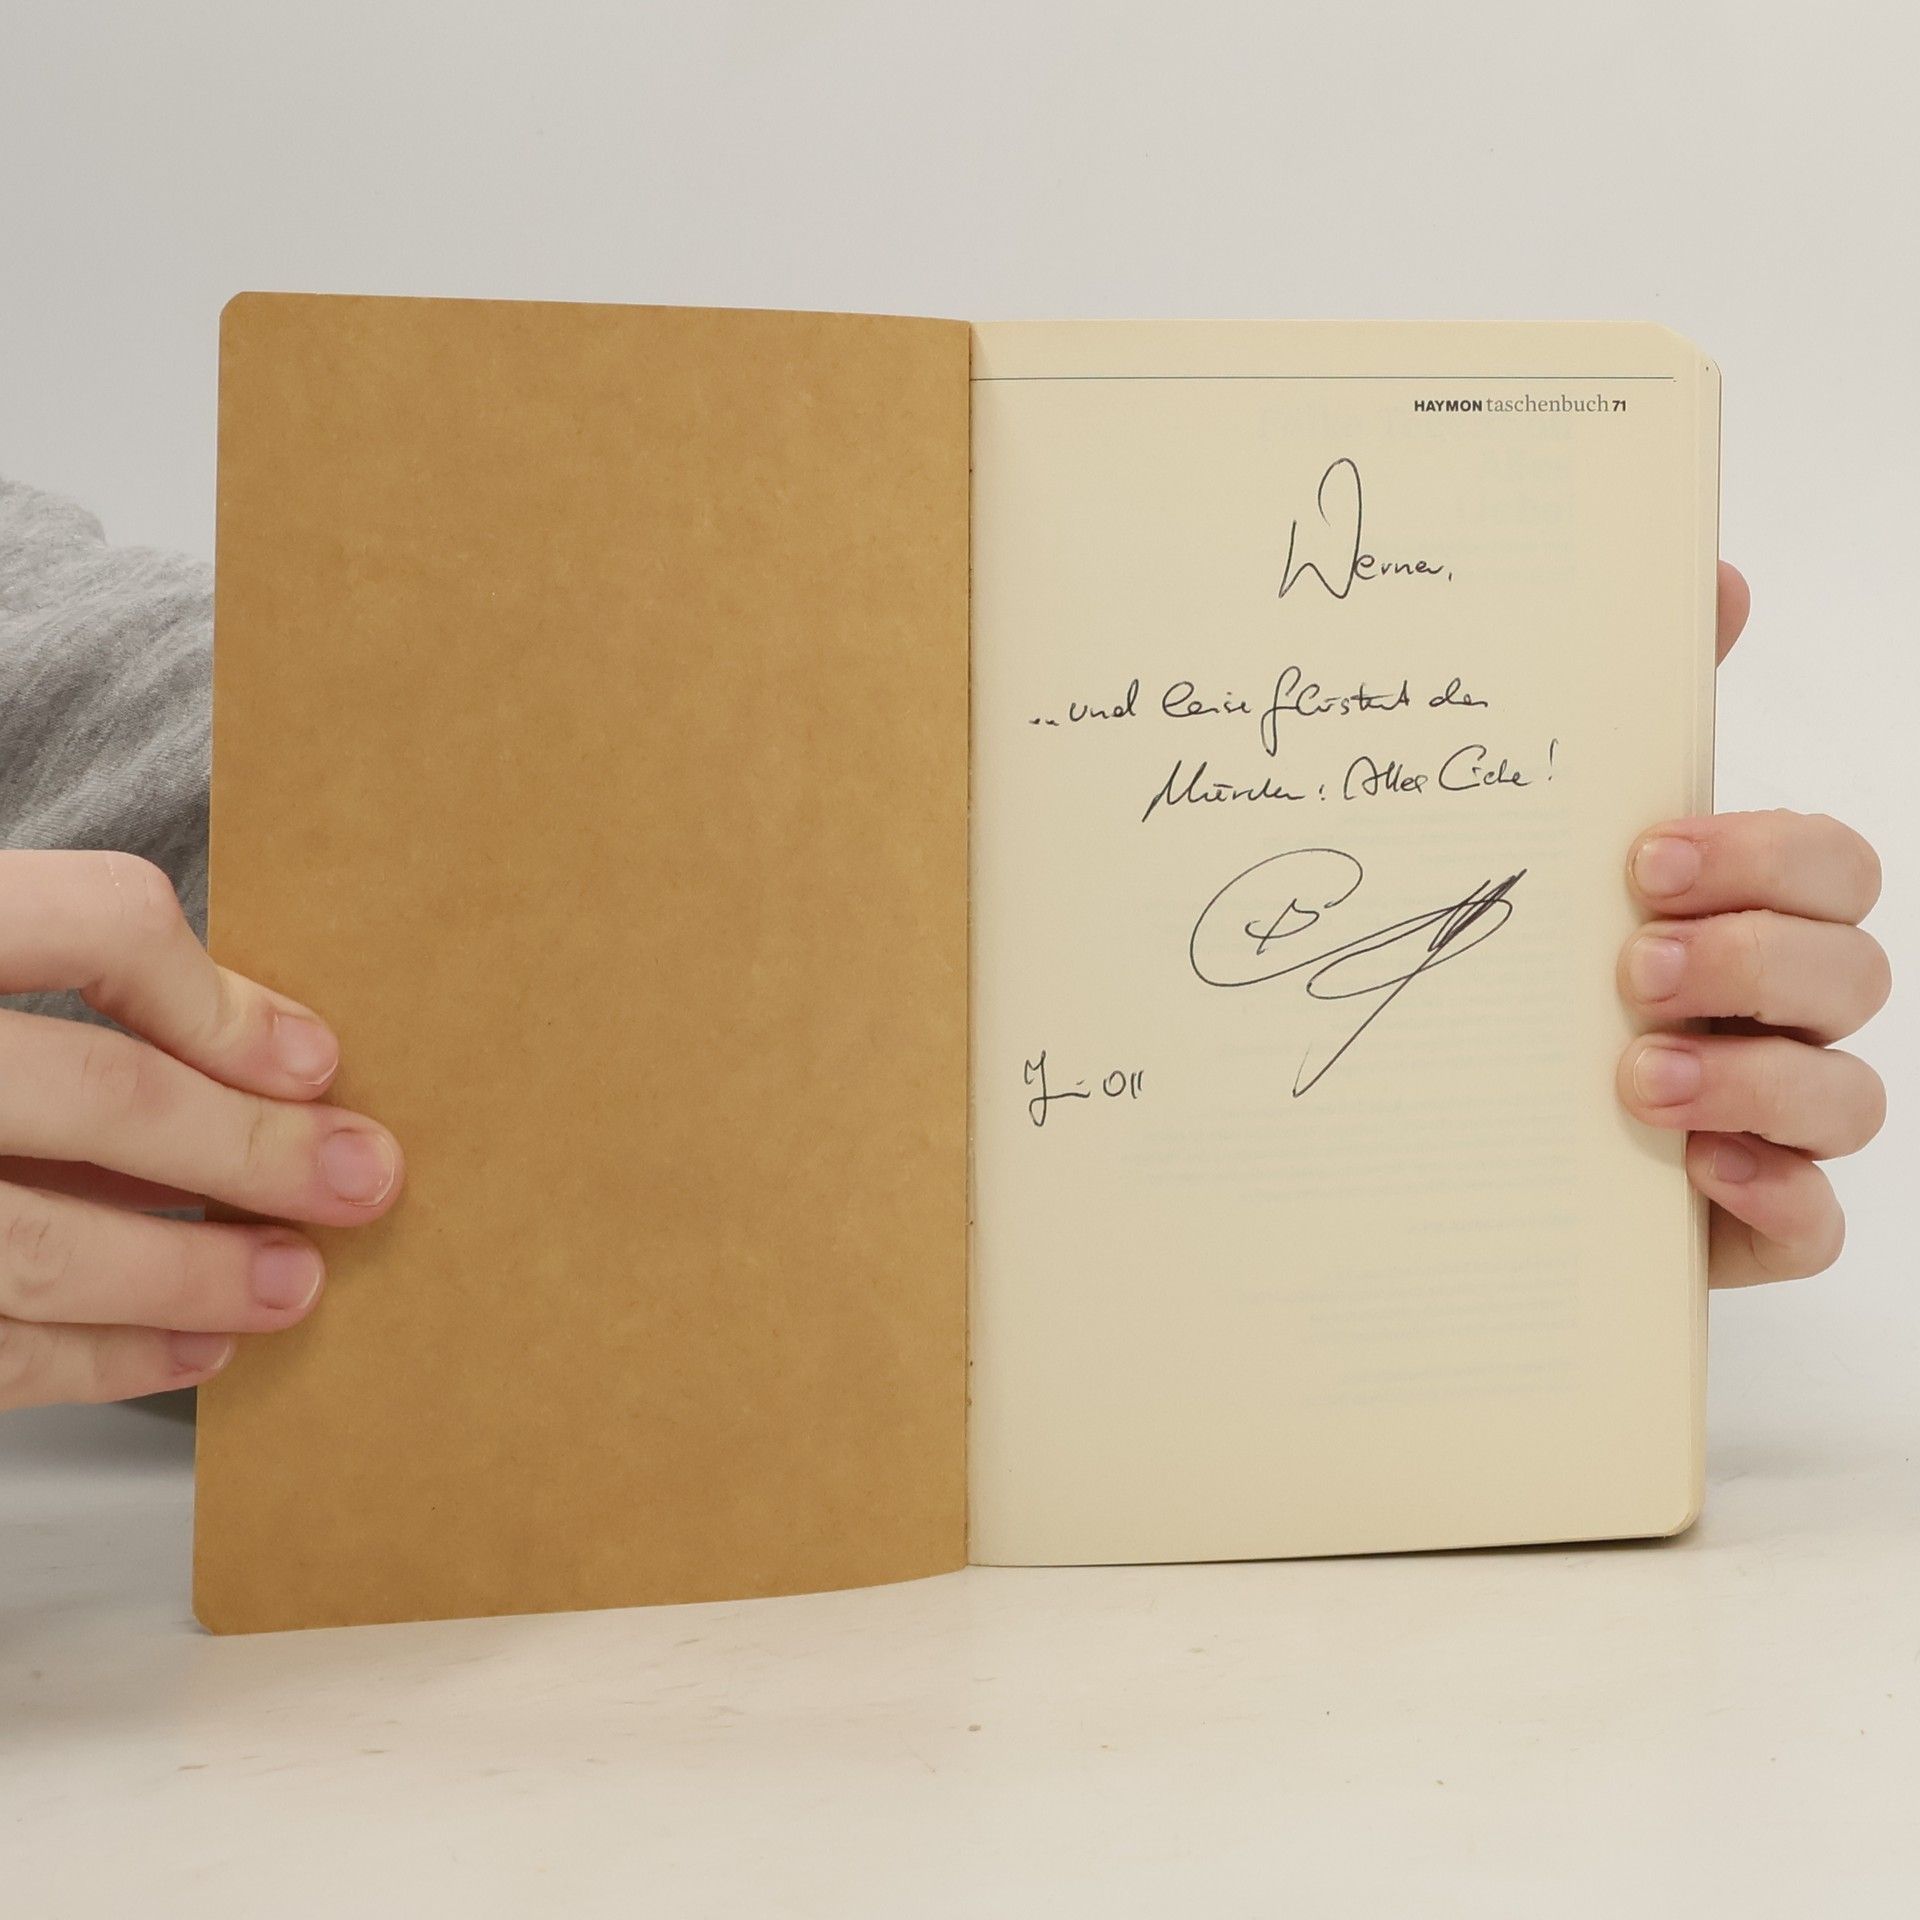 HAYMON taschenbuch 71
Werner,
...und leise flüstert der
Mörder: Alles Liebe!